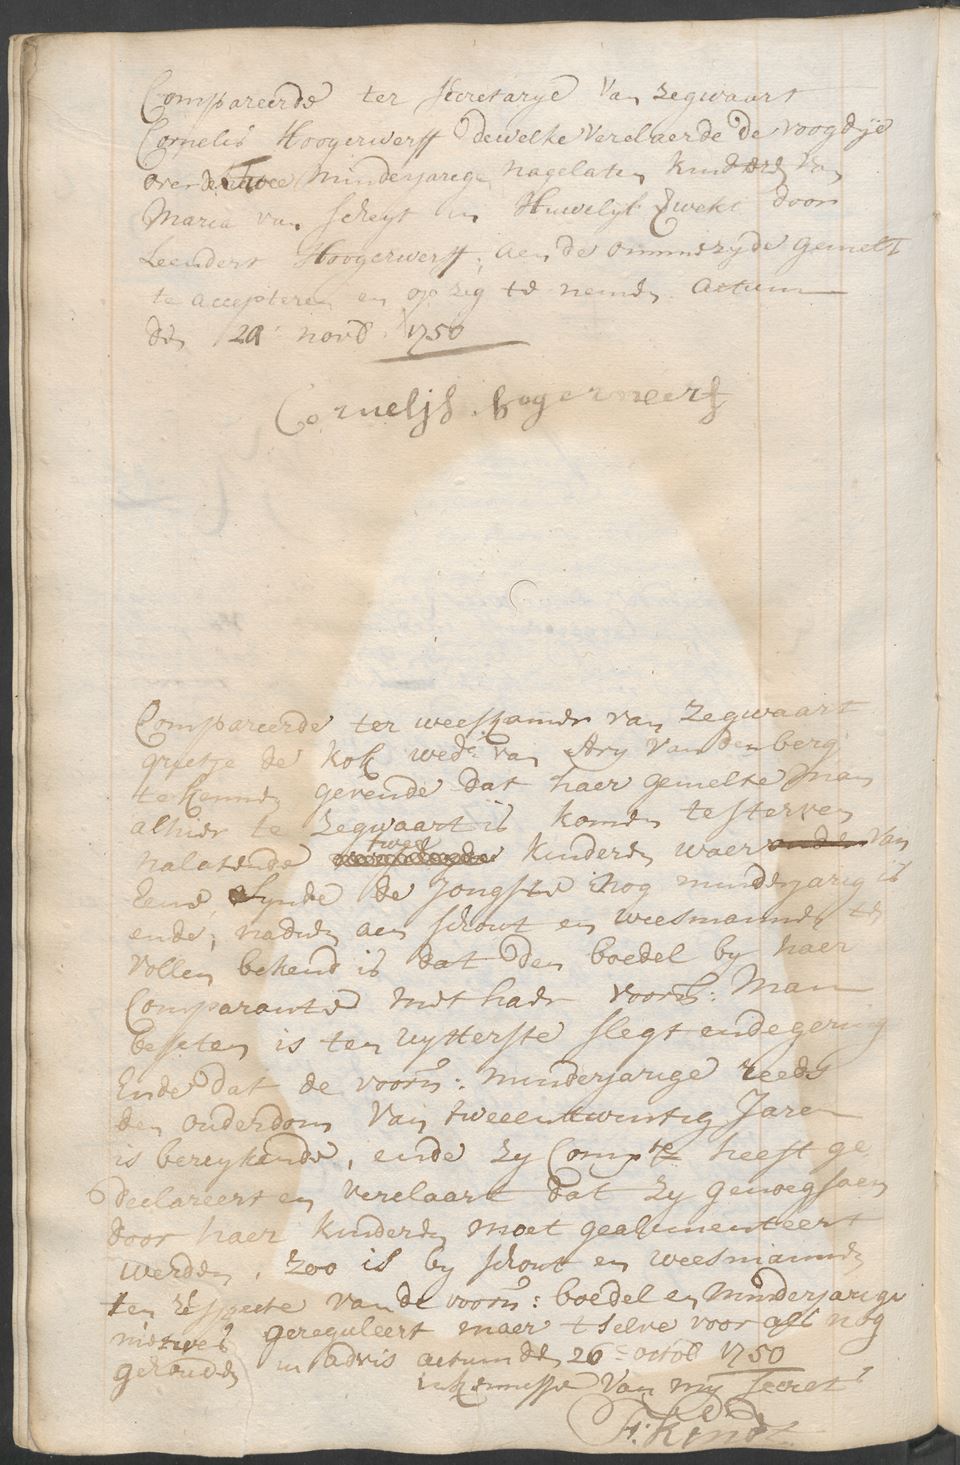 Compareerde ter secretarye van Zegwaart
Cornelis Hoogerwerff dewelke verclaerde de voogdije
over de twee minderjarige nagelaten kinderen van
Maria van Scheyt in Huwelijk verwekt door
Leendert Hoogerwerff, aen de ommezyde gemelt
te accepteren en op zig te nemen actum
den 21 novb 1750
Cornelijs hogerweerf
Compareerde ter weeskamer van Zegwaart
grietje de Kok wede van Ary van den berg
te kennen gevende dat haer gemelte man
alhier te Zegwaart is komen te sterven
nalatende twee kinderen waer van
eene zynde de jongste nog minderjarig is
ende, nadien aen schout en weesmannen ten
vollen bekend is dat den boedel by haer
Comparante met haer voorn: Man
beseten is ten uytterste slegt ende gering
Ende dat de voorn: minderjarige reeds
den ouderdom van tweeentwintig Jaren
is bereykende, ende zy Compte heeft ge
declareert en verclaart dat zy genoegsaem
door haer kinderen moet gealimenteert
werden, zoo is by schout en weesmannen
ten respecte van de voorn: boedel en minderjarige
niets gereguleert maer tselve voor als nog
gehouden in advis actum den 26 octob 1750
in kennisse van my secrets
F: Kindt